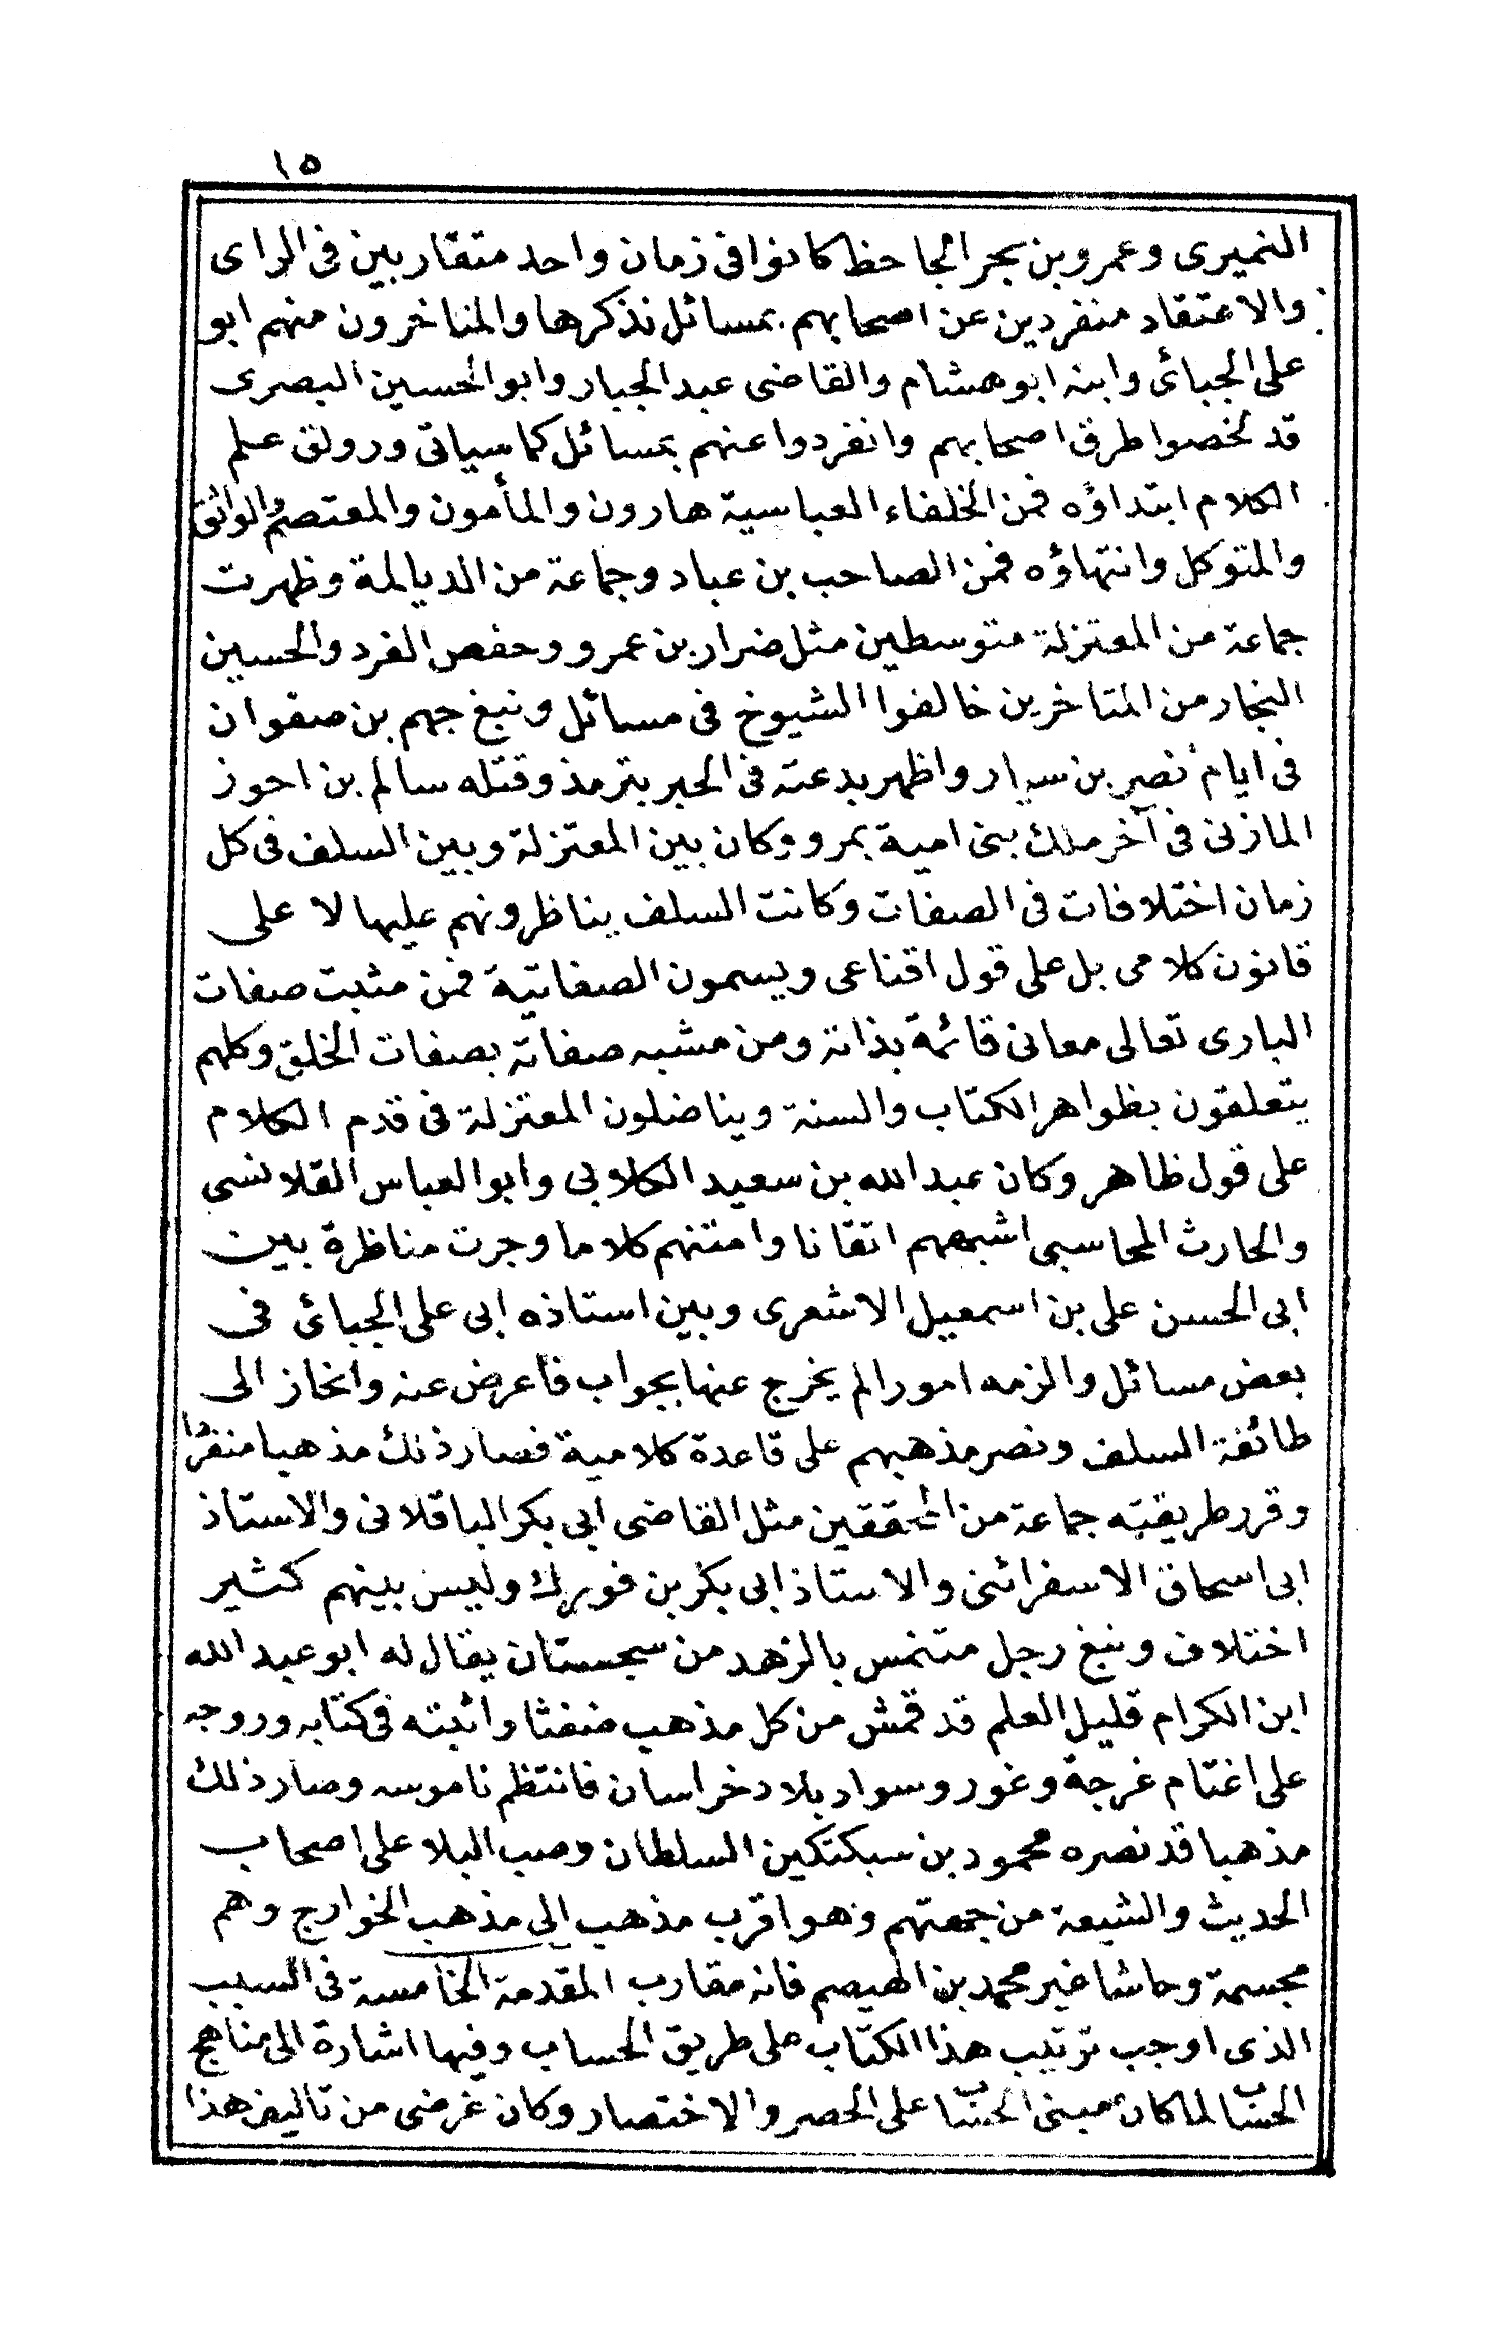 ١٥
النميرى وعمرو بن بحر الجاحظ كانوا فى زمان واحد متقاربين فى الراى
والاعتقاد منفردين عن اصحابهم بمسائل نذكرها والمتاخرون منهم ابو
على الجبائى وابنه ابو هشام والقاضى عبد الجبار وابو الحسين البصرى
قد لخصوا طرق اصحابهم وانفردوا عنهم بمسائل كما سياتى ورونق علم
الكلام ابتداؤه فمن الخلفاء العباسية هارون والمأمون والمعتصم والواثق
والمتوكل وانتهاؤه فمن الصاحب بن عباد وجماعة من الديالمة وظهرت
جماعة من المعتزلة متوسطين مثل ضرار بن عمرو وحفص الفرد والحسين
النجار من المتاخرين خالفوا الشيوخ فى مسائل ونبغ جهم بن صفوان
فى ايام نصر بن سيار واظهر بدعته فى الجبر بترمذ وقتله سالم بن احوز
المازنى فى آخر ملك بنى امية بمرو وكان بين المعتزلة وبين السلف فى كل
زمان اختلافات فى الصفات وكانت السلف يناظرونهم عليها لا على
قانون كلامى بل على قول اقناعى ويسمون الصفاتية فمن مثبت صفات
البارى تعالى معانى قائمة بذاته ومن مشبه صفاته بصفات الخلق وكلهم
يتعلقون بظواهر الكتاب والسنة ويناضلون المعتزلة فى قدم الكلام
على قول ظاهر وكان عبد الله بن سعيد الكلابى وابو العباس القلانسى
والحارث المحاسبى اشبههم اتقانا وامتنهم كلاما وجرت مناظرة بين
ابى الحسن على بن اسمعيل الاشعرى وبين استاذه ابى على الجبائى فى
بعض مسائل والزمه امورا لم يخرج عنها بجواب فاعرض عنه وانحاز الى
طائفة السلف ونصر مذهبهم على قاعدة كلامية فصار ذلك مذهبا منفردا
وقرر طريقته جماعة من المحققين مثل القاضى ابى بكر الباقلانى والاستاذ
ابى اسحاق الاسفرائنى والاستاذ ابى بكر بن فورك وليس بينهم كثير
اختلاف ونبغ رجل متنمس بالزهد من سجستان يقال له ابو عبد الله
ابن الكرام قليل العلم قد قمش من كل مذهب ضغثا واثبته فى كتابه وروجه
على اغتام غرجة وغور وسواد بلاد خراسان فانتظم ناموسه وصار ذلك
مذهبا قد نصره محمود بن سبكتكين السلطان وصب البلا على اصحاب
الحديث والشيعة من جهتهم وهو اقرب مذهب الى مذهب الخوارج وهم
مجسمة وحاشا غير محمد بن الهيصم فانه مقارب المقدمة الخامسة فى السبب
الذى اوجب ترتيب هذا الكتاب على طريق الحساب وفيها اشارة الى مناهج
الحساب لما كان مبنى الحساب على الحصر والاختصار وكان غرضى من تاليف هذا